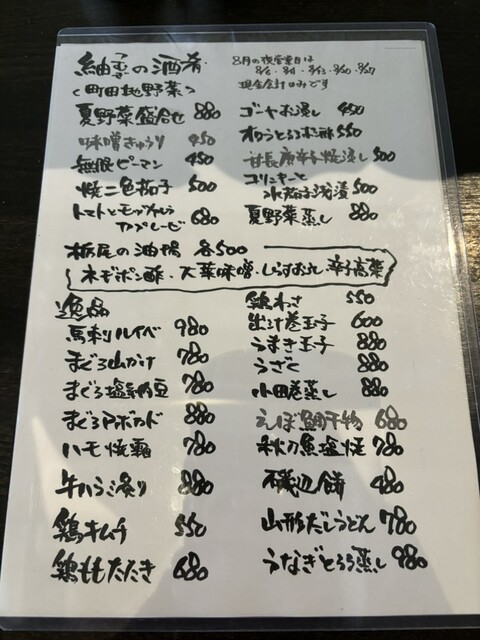 紬の酒肴
つむぎ
8月の夜営業日は
現金会計のみです
<町田地野菜>
夏野菜盛合せ 880
味噌きゅうり 450
無限ピーマン 450
焼二色茄子 500
トマトとモッツァレラ
カプレーゼ 680
ゴーヤお浸し 450
オクラとろろポン酢 550
甘長唐辛子焼浸し 500
コリンキーと
水茄子浅漬 500
夏野菜蒸し 880
栃尾の油揚 各500
ネギポン酢・大葉味噌・しらすおろし 辛子高菜
逸品
馬刺ルイベ 980
まぐろ山かけ 780
まぐろ塩納豆 780
まぐろアボカド 880
ハモ焼霜 780
牛ハラミ炙り 880
鶏キムチ 550
鶏ももたたき 680
鶏わさ 550
出汁巻玉子 600
うまき玉子 880
うざく 880
小田巻蒸し 880
えぼ鯛干物 680
秋刀魚塩焼 780
磯辺餅 480
山形だしうどん 780
うなぎとろろ蒸し 980